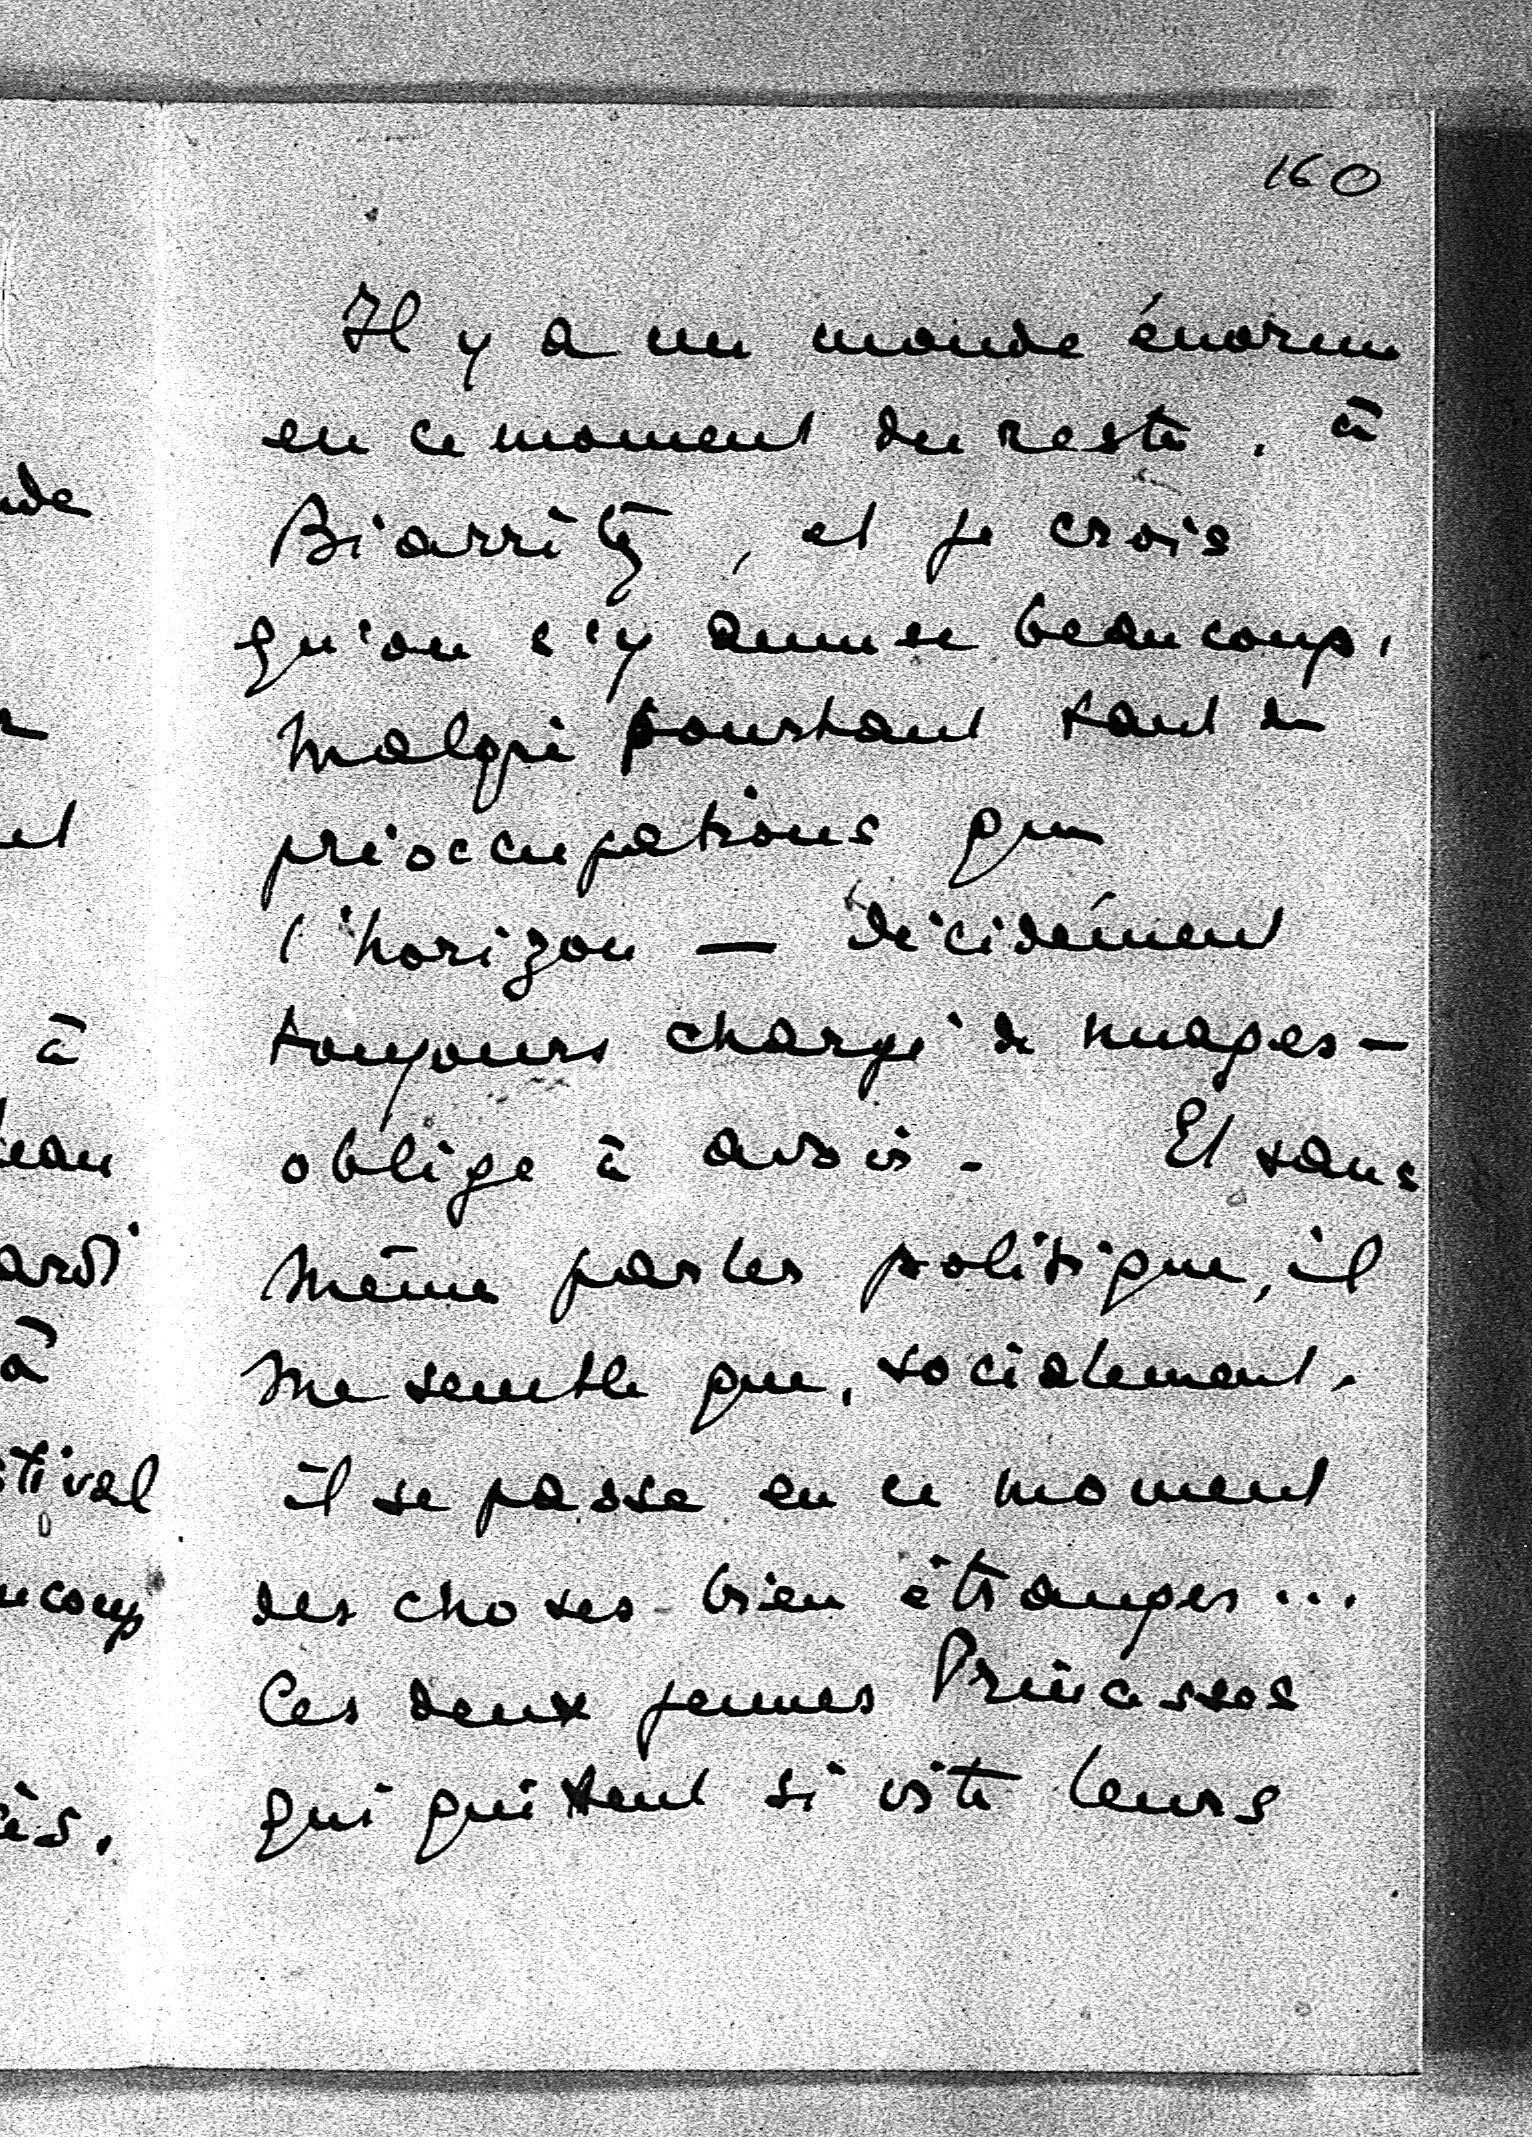 160
Il y a un monde énorme
en ce moment du reste, à
Biarritz, et je crois
qu'on s'y amuse beaucoup,
malgré pourtant tant de
préoccupations que
l'horizon — décidément
toujours chargé de nuages —
oblige à avoir. Et sans
même parler politique, il
me semble que, socialement,
il se passe en ce moment
des choses bien étranges...
Ces deux jeunes Princesses
qui quittent si vite leurs
à
à